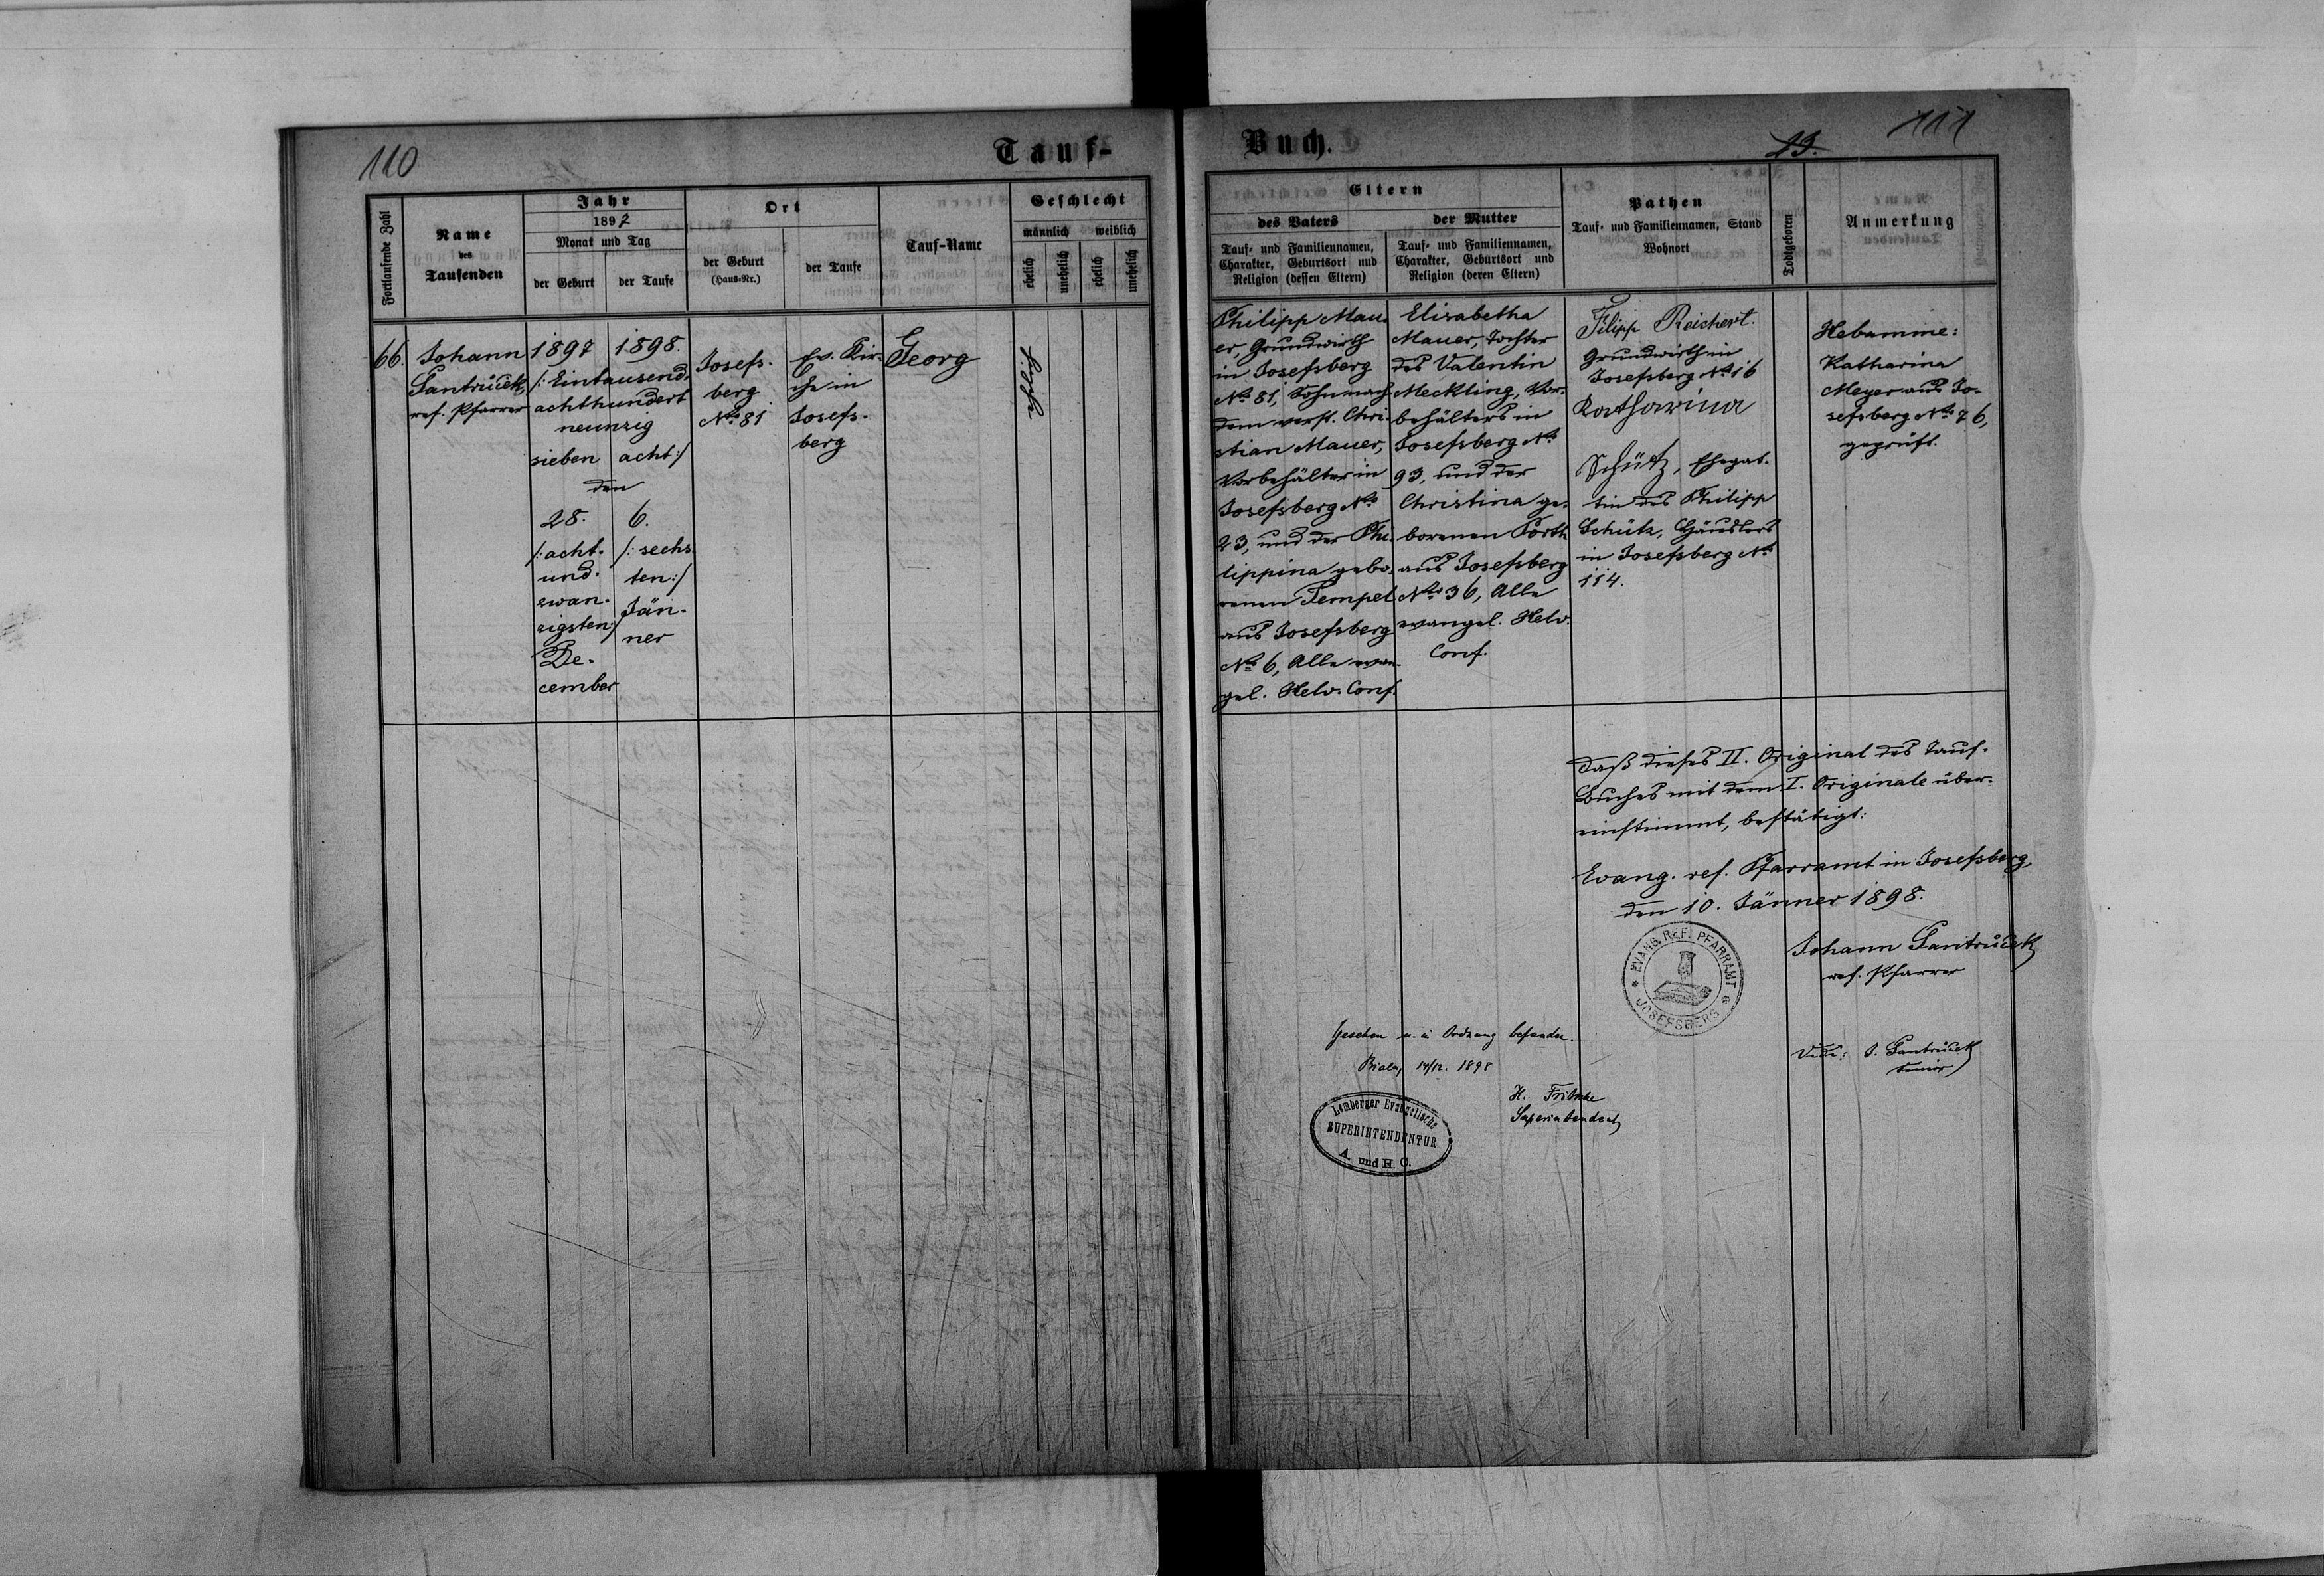 110
Tauf-
Fortlaufende Zahl
Name
des
Taufenden
Jahr
1897
Monat und Tag
der Geburt
der Taufe
Ort
der Geburt
(Haus-Nr.)
der Taufe
Tauf-Name
Geschlecht
männlich
weiblich
ehelich
unehelich
ehelich
unehelich
66.
Johann
Santrůček,
ref. Pfarrer
1897 1898.
/: Eintausend,
achthundert
neunzig
sieben acht :/
den
28.
/: acht-
und-
zwan-
zigsten :/
De-
cember
6.
/: sechs-
ten :/
Jän-
ner
Josefs-
berg
No 81
Ev. Kir-
che in
Josefs-
berg
Georg
Buch.
13.
111
Eltern
des Vaters
Tauf- und Familiennamen,
Charakter, Geburtsort und
Religion (dessen Eltern)
der Mutter
Tauf- und Familiennamen,
Charakter, Geburtsort und
Religion (deren Eltern)
Pathen
Tauf- und Familiennamen, Stand
Wohnort
Todtgeboren
Anmerkung
Philipp Mau-
er, Grundwirth
in Josefsberg
No 81, Sohn nach
dem verst. Chri-
stian Mauer,
Vorbehälter in
Josefsberg No
23, und der Phi-
lippina gebo-
renen Tempel
aus Josefsberg
No 6, Alle evan-
gel. Helv. Conf.
Elisabetha
Mauer, Tochter
des Valentin
Meckling, Vor-
behälters in
Josefsberg No
93, und der
Christina ge-
borenen Porth
aus Josefsberg
No 36, Alle
evangel. Helv.
Conf.
Filipp Reichert.
Grundwirth in
Josefsberg No 16
Katharina
Schütz, Ehegat-
tin des Philipp
Schütz, Häuslers
in Josefsberg No
114.
Hebamme:
Katharina
Meyer aus Jo-
sefsberg No 76,
geprüft.
Daß dieses II. Original des Tauf-
Buches mit dem I. Originale über-
einstimmt, bestätigt:
Evang. ref. Pfarramt in Josefsberg,
den 10. Jänner 1898.
EVANG. REF. PFARRAMT
JOSEFSBERG
Johann Santrůček
ref. Pfarrer
Gesehen u. in Ordnung befunden.
Biala, 14/12. 1898
H. Fritsche
Superintendent
Lemberger Evangelische
SUPERINTENDENTUR
A. und H. C.
Vidi: J. Santrůček
Senior